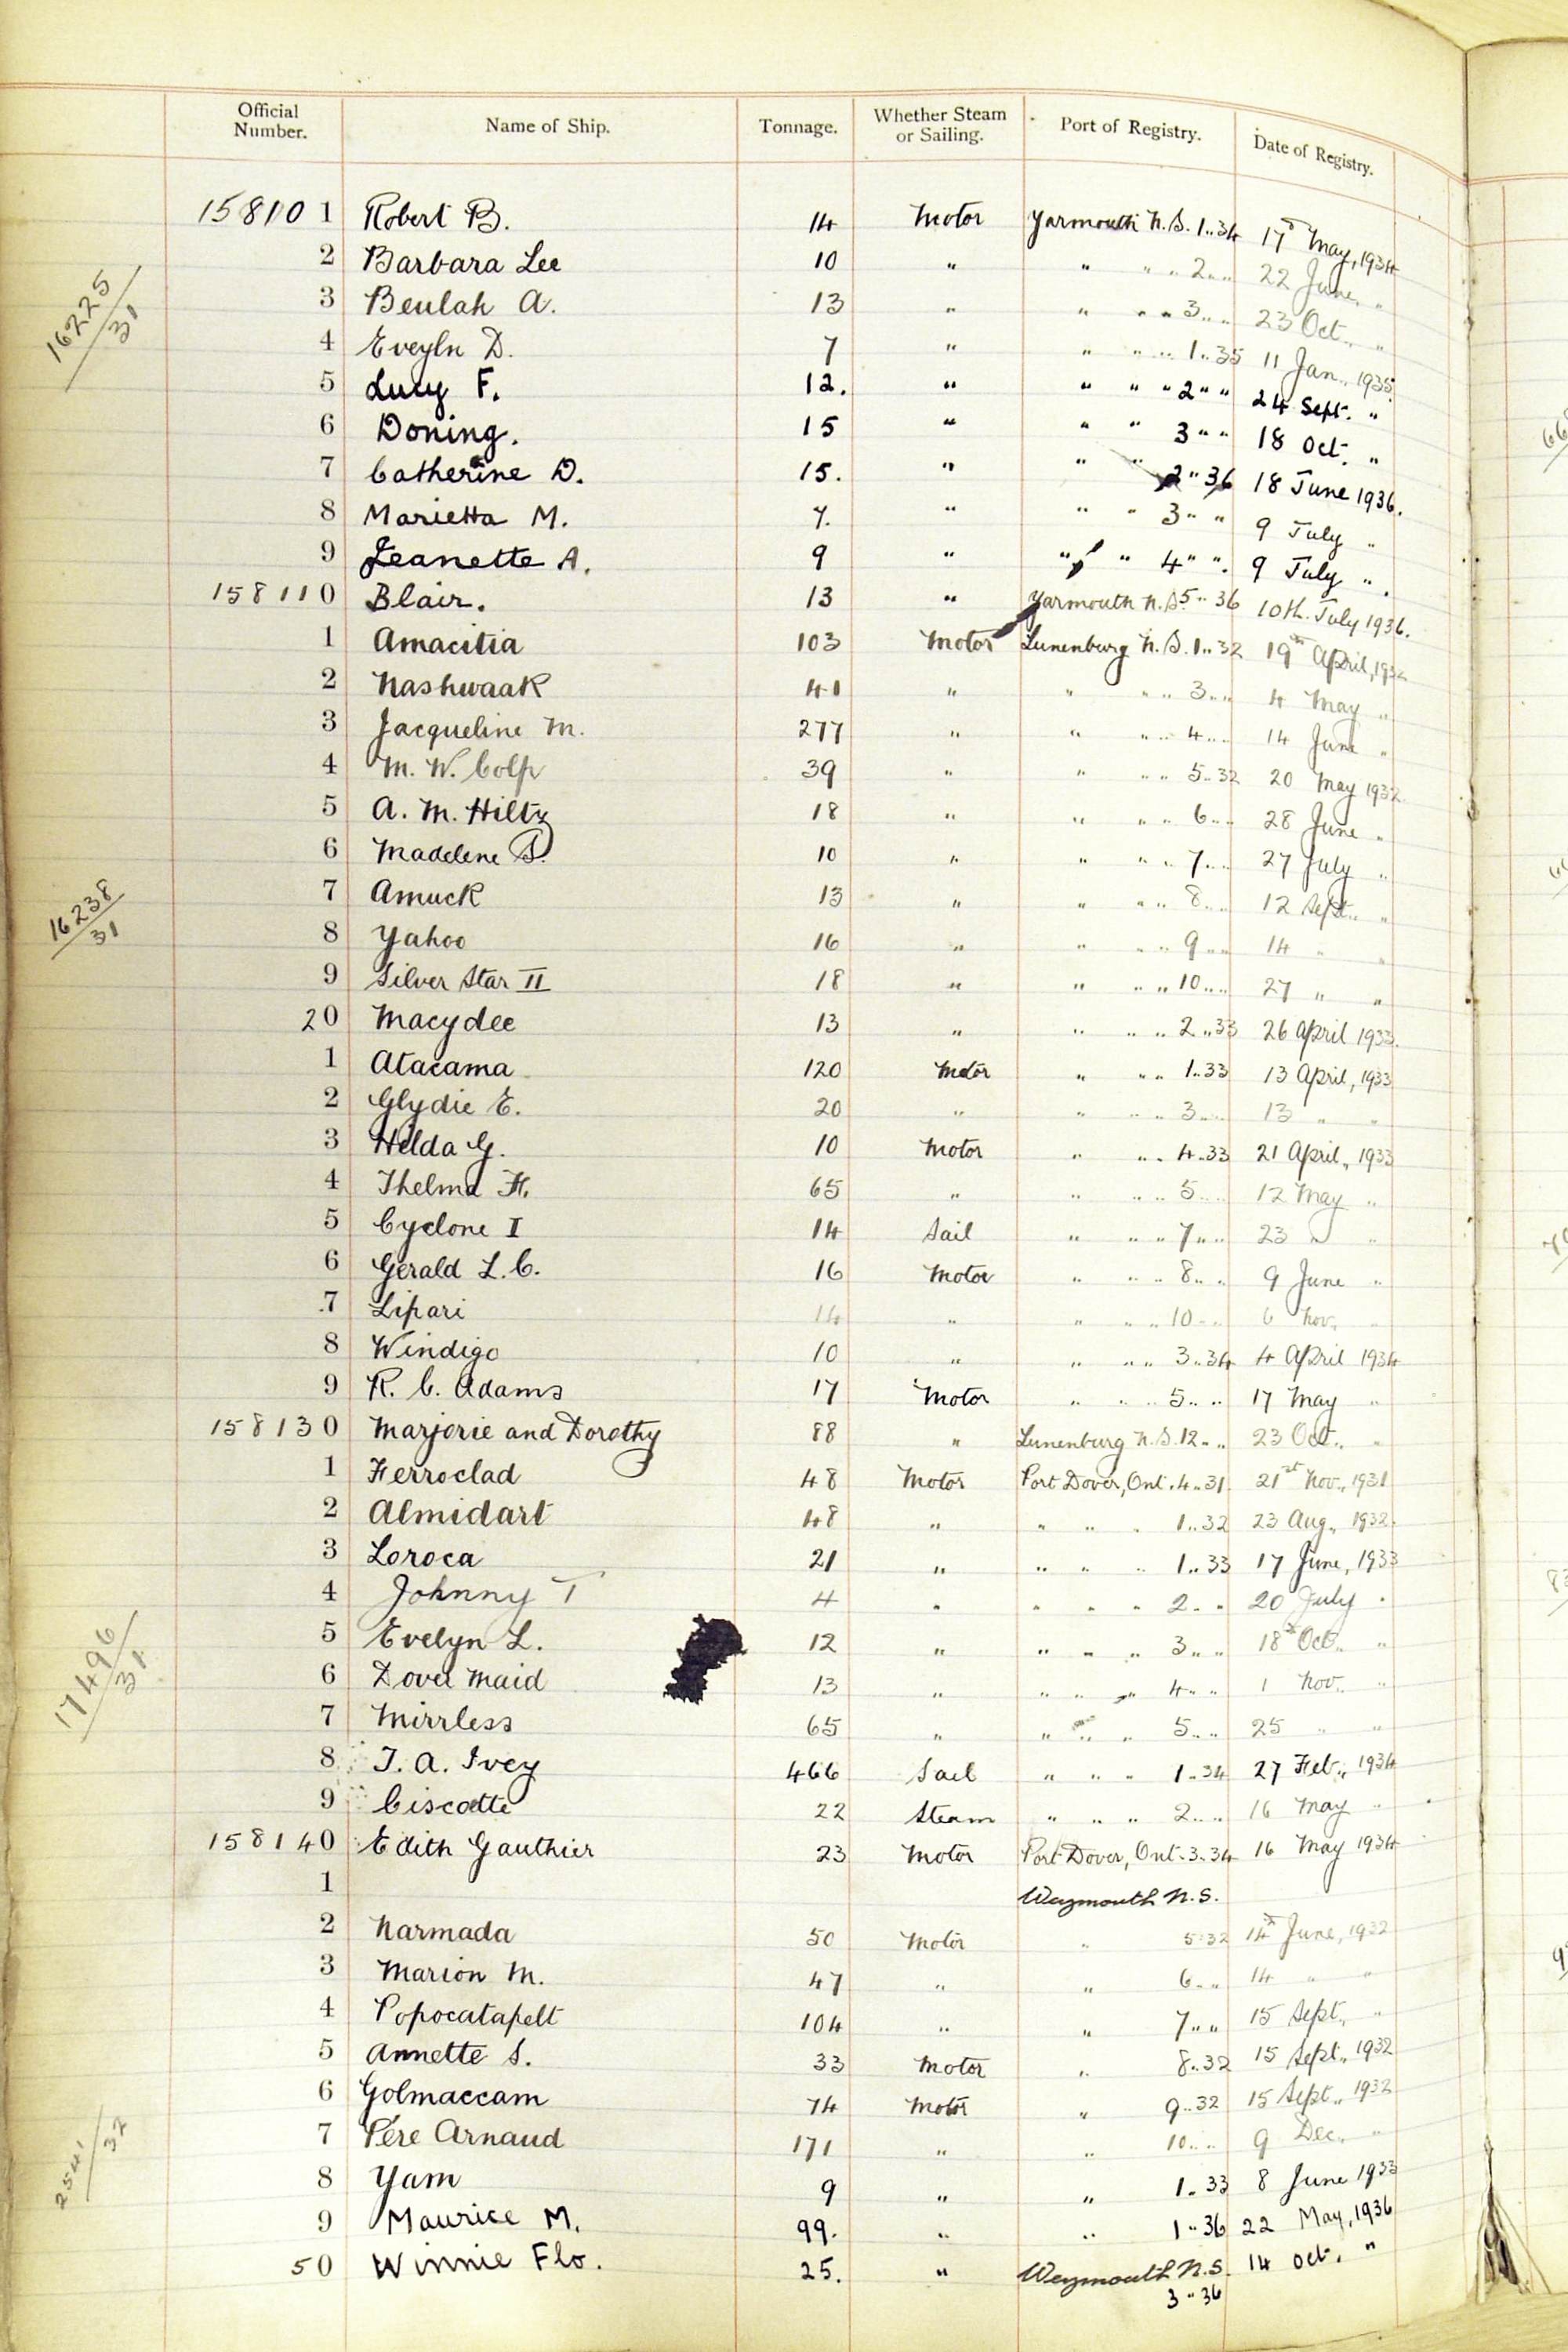 Official Number. Name of Ship. Tonnage. Whether Steam or Sailing. Port of Registry. Date of Registry.
158101 Robert B. 14 Motor Yarmouth N.S. 1..34 17th May, 1934
2 Barbara Lee 10 " " " " 2 " " 22 June, "
3 Beulah A. 13 " " " " 3 " " 23 Oct., "
4 Eveyln D. 7 " " " " 1..35 11 Jan., 1935
5 Lucy F. 12. " " " " 2 " " 24 Sept. "
6 Doning. 15 " " " 3 " " 18 Oct. "
7 Catherine D. 15. " " " 2 " 36 18 June 1936.
8 Marietta M. 7. " " " 3 " " 9 July "
9 Jeanette A. 9 " " " 4 " ". 9 July ".
158110 Blair. 13 " Yarmouth N.S. 5 " 36 10th. July 1936.
1 Amacitia 103 Motor Lunenburg N.S. 1..32 19th April, 1932
2 Nashwaak 41 " " " " 3 " " 4 May "
3 Jacqueline M. 277 " " " " 4 " " 14 June "
4 M. W. Colp 39 " " " " 5..32 20 May 1932
16225/31
5 A. M. Hiltz 18 " " " " 6 " " 28 June "
6 Madelene S. 10 " " " " 7 " " 27 July "
7 Amuck 13 " " " " 8 " " 12 Sept., "
16238/31
8 Yahoo 16 " " " " 9 " " 14 " "
9 Silver Star II 18 " " " " 10 " " 27 " "
20 Macydee 13 " " " " 2..33 26 April 1933.
1 Atacama 120 Motor " " " 1..33 13 April, 1933
2 Glydie E. 20 " " " " 3 " " 13 " "
3 Helda G. 10 Motor " " " 4..33 21 April, 1933
4 Thelma H. 65 " " " " 5 " " 12 May "
5 Cyclone I 14 Sail " " " 7 " " 23 " "
6 Gerald L. C. 16 Motor " " " 8 " " 9 June "
7 Lipari 14 " " " " 10 " " 6 Nov. "
8 Windigo 10 " " " " 3..34 4 April 1934
9 R. C. Adams 17 Motor " " " 5 " " 17 May "
158130 Marjorie and Dorothy 88 " Lunenburg N.S. 12 " " 23 Oct., "
1 Ferroclad 48 Motor Port Dover, Ont. 4..31 21st Nov., 1931
2 Almidart 48 " " " " 1..32 23 Aug., 1932.
3 Loroca 21 " " " " 1..33 17 June, 1933
4 Johnny T 4 " " " " 2 " " 20 July "
5 Evelyn L. 12 " " " " 3 " " 18th Oct., "
6 Dover Maid 13 " " " " 4 " " 1 Nov. "
17496/31
7 Mirrless 65 " " " " 5 " " 25 " "
8 T. A. Ivey 466 Sail " " " 1..34 27 Feb., 1934
9 Ciscoette 22 Steam " " " 2 " " 16 May "
158140 Edith Gauthier 23 Motor Port Dover, Ont. 3..34 16 May 1934
1 Weymouth N.S.
2 Narmada 50 Motor " 5..32 14th June, 1932
3 Marion M. 47 " " 6 " " 14 " "
4 Popocatapelt 104 " " 7 " " 15 Sept., "
5 Annette S. 33 Motor " 8..32 15 Sept., 1932
6 Golmaccam 74 Motor " 9..32 15 Sept., 1932
7 Père Arnaud 171 " " 10 " " 9 Dec., "
8 Yam 9 " " 1..33 8 June 1933
9 Maurice M. 99. " " 1 " 36 22 May, 1936
50 Winnie Flo. 25. " Weymouth N.S. 14 Oct. "
3 " 36